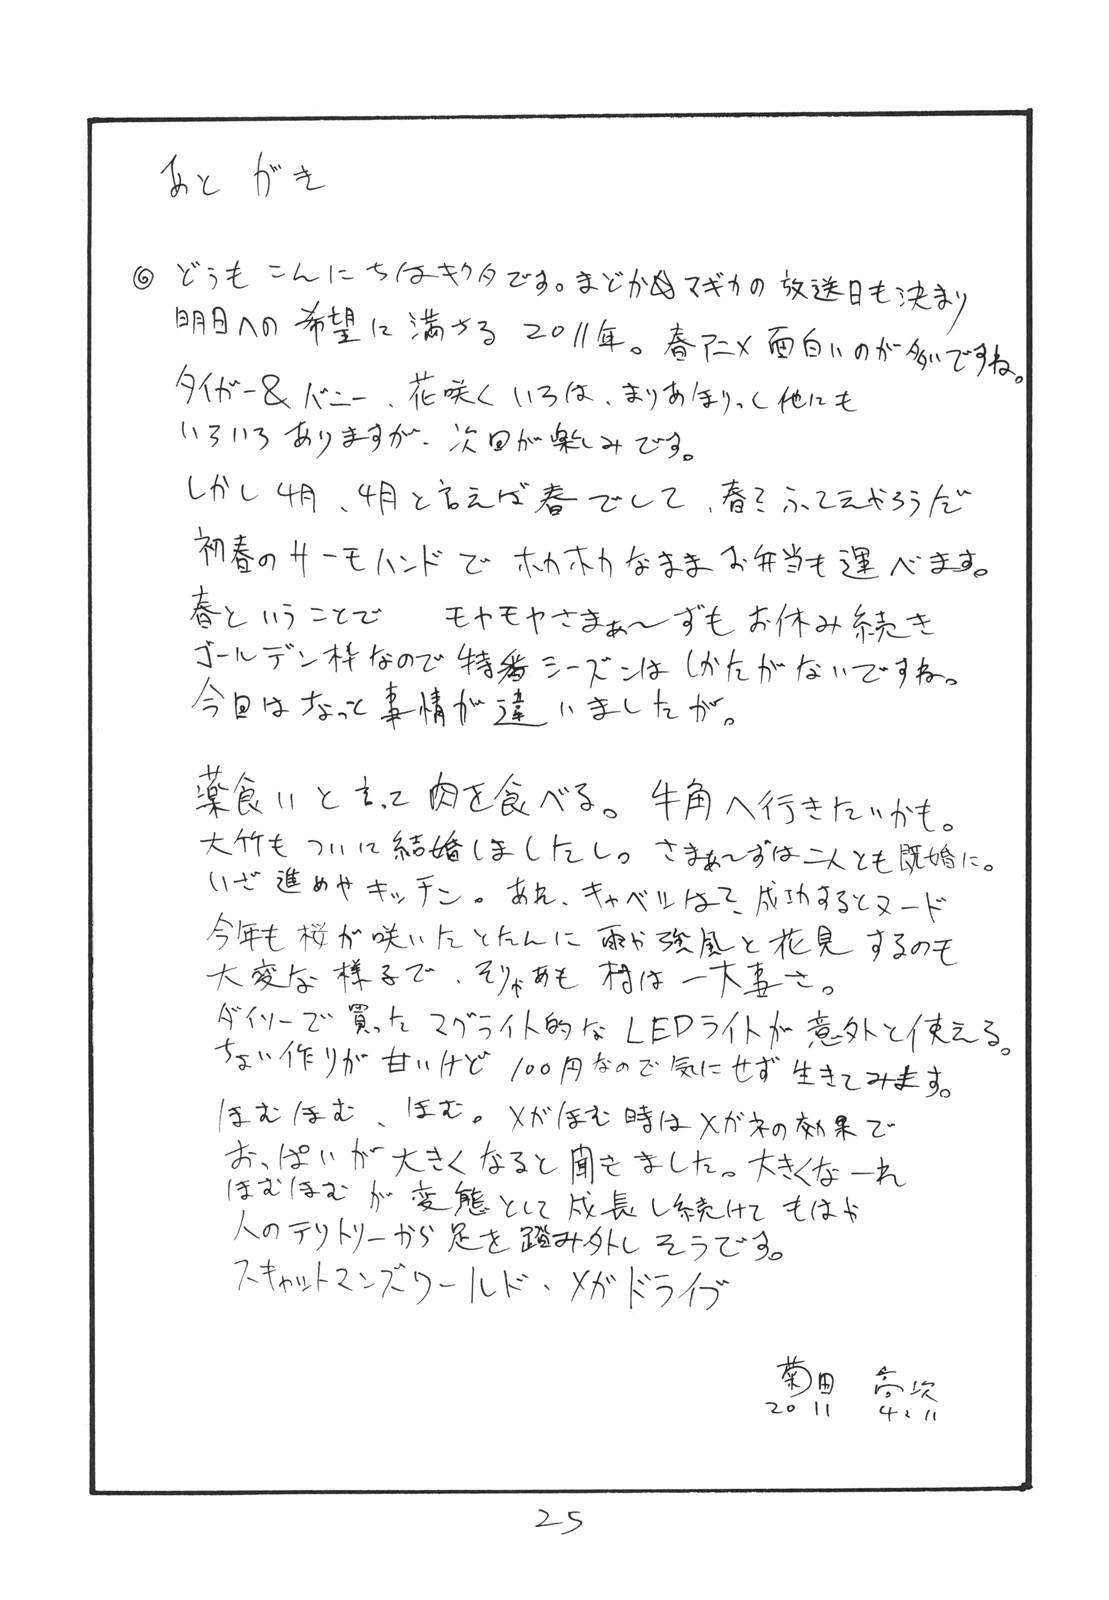 あとがき
◎ どうもこんにちはキクタです。まどか☆マギカの放送日も決まり
明日への希望に満ちる 2011年。春アニメ面白いのが多いですね。
タイガー&バニー、花咲くいろは、まりあほりっく他にも
いろいろありますが、次回が楽しみです。
しかし4月、4月と言えば春でして、春と
初春のサーモハンドでホカホカなままお弁当も運べます。
春ということで モヤモヤさまぁ〜ずもお休み続き
ゴールデン枠なので特番シーズンはしかたがないですね。
今回はちょっと事情が違いましたが。
薬食いと言って肉を食べる。牛角へ行きたいかも。
大竹もついに結婚しましたし。さまぁ〜ずは二人とも既婚に。
いざ進めやキッチン。あれ、キャベツはて、成功するとヌード
今年も桜が咲いたとたんに雨や強風と花見するのも
大変な様子で、そりゃあも村は一大事さ。
ダイソーで買ったマグライト的なLEDライトが意外と使える。
ちょい作りが甘いけど100円なので気にせず生きてみます。
ほむほむ、ほむ。メガほむ時はメガネの効果で
おっぱいが大きくなると聞きました。大きくなーれ
ほむほむが変態として成長し続けてもはや
人のテリトリーから足を踏み外しそうです。
スキャットマンズワールド、メガドライブ
菊田 高次
2011 4.11
25